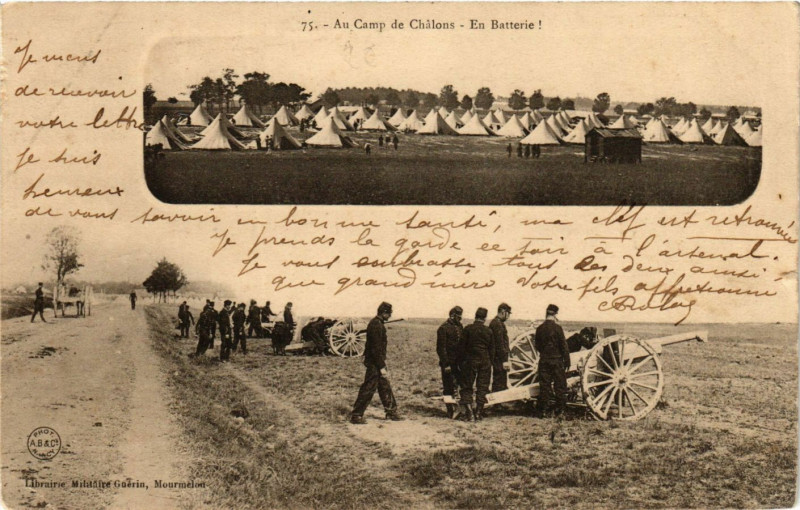 75. - Au Camp de Châlons - En Batterie !
Je viens
de recevoir
votre lettre
je suis
heureux
de vous savoir en bonne santé, ma clef est retrouvée
je prends la garde ce soir à l'arsenal.
Je vous embrasse tous les deux ainsi
que grand'mère Votre fils affectionné
PHOT
A.B & Cie
NANCY
Librairie Militaire Guérin, Mourmelon